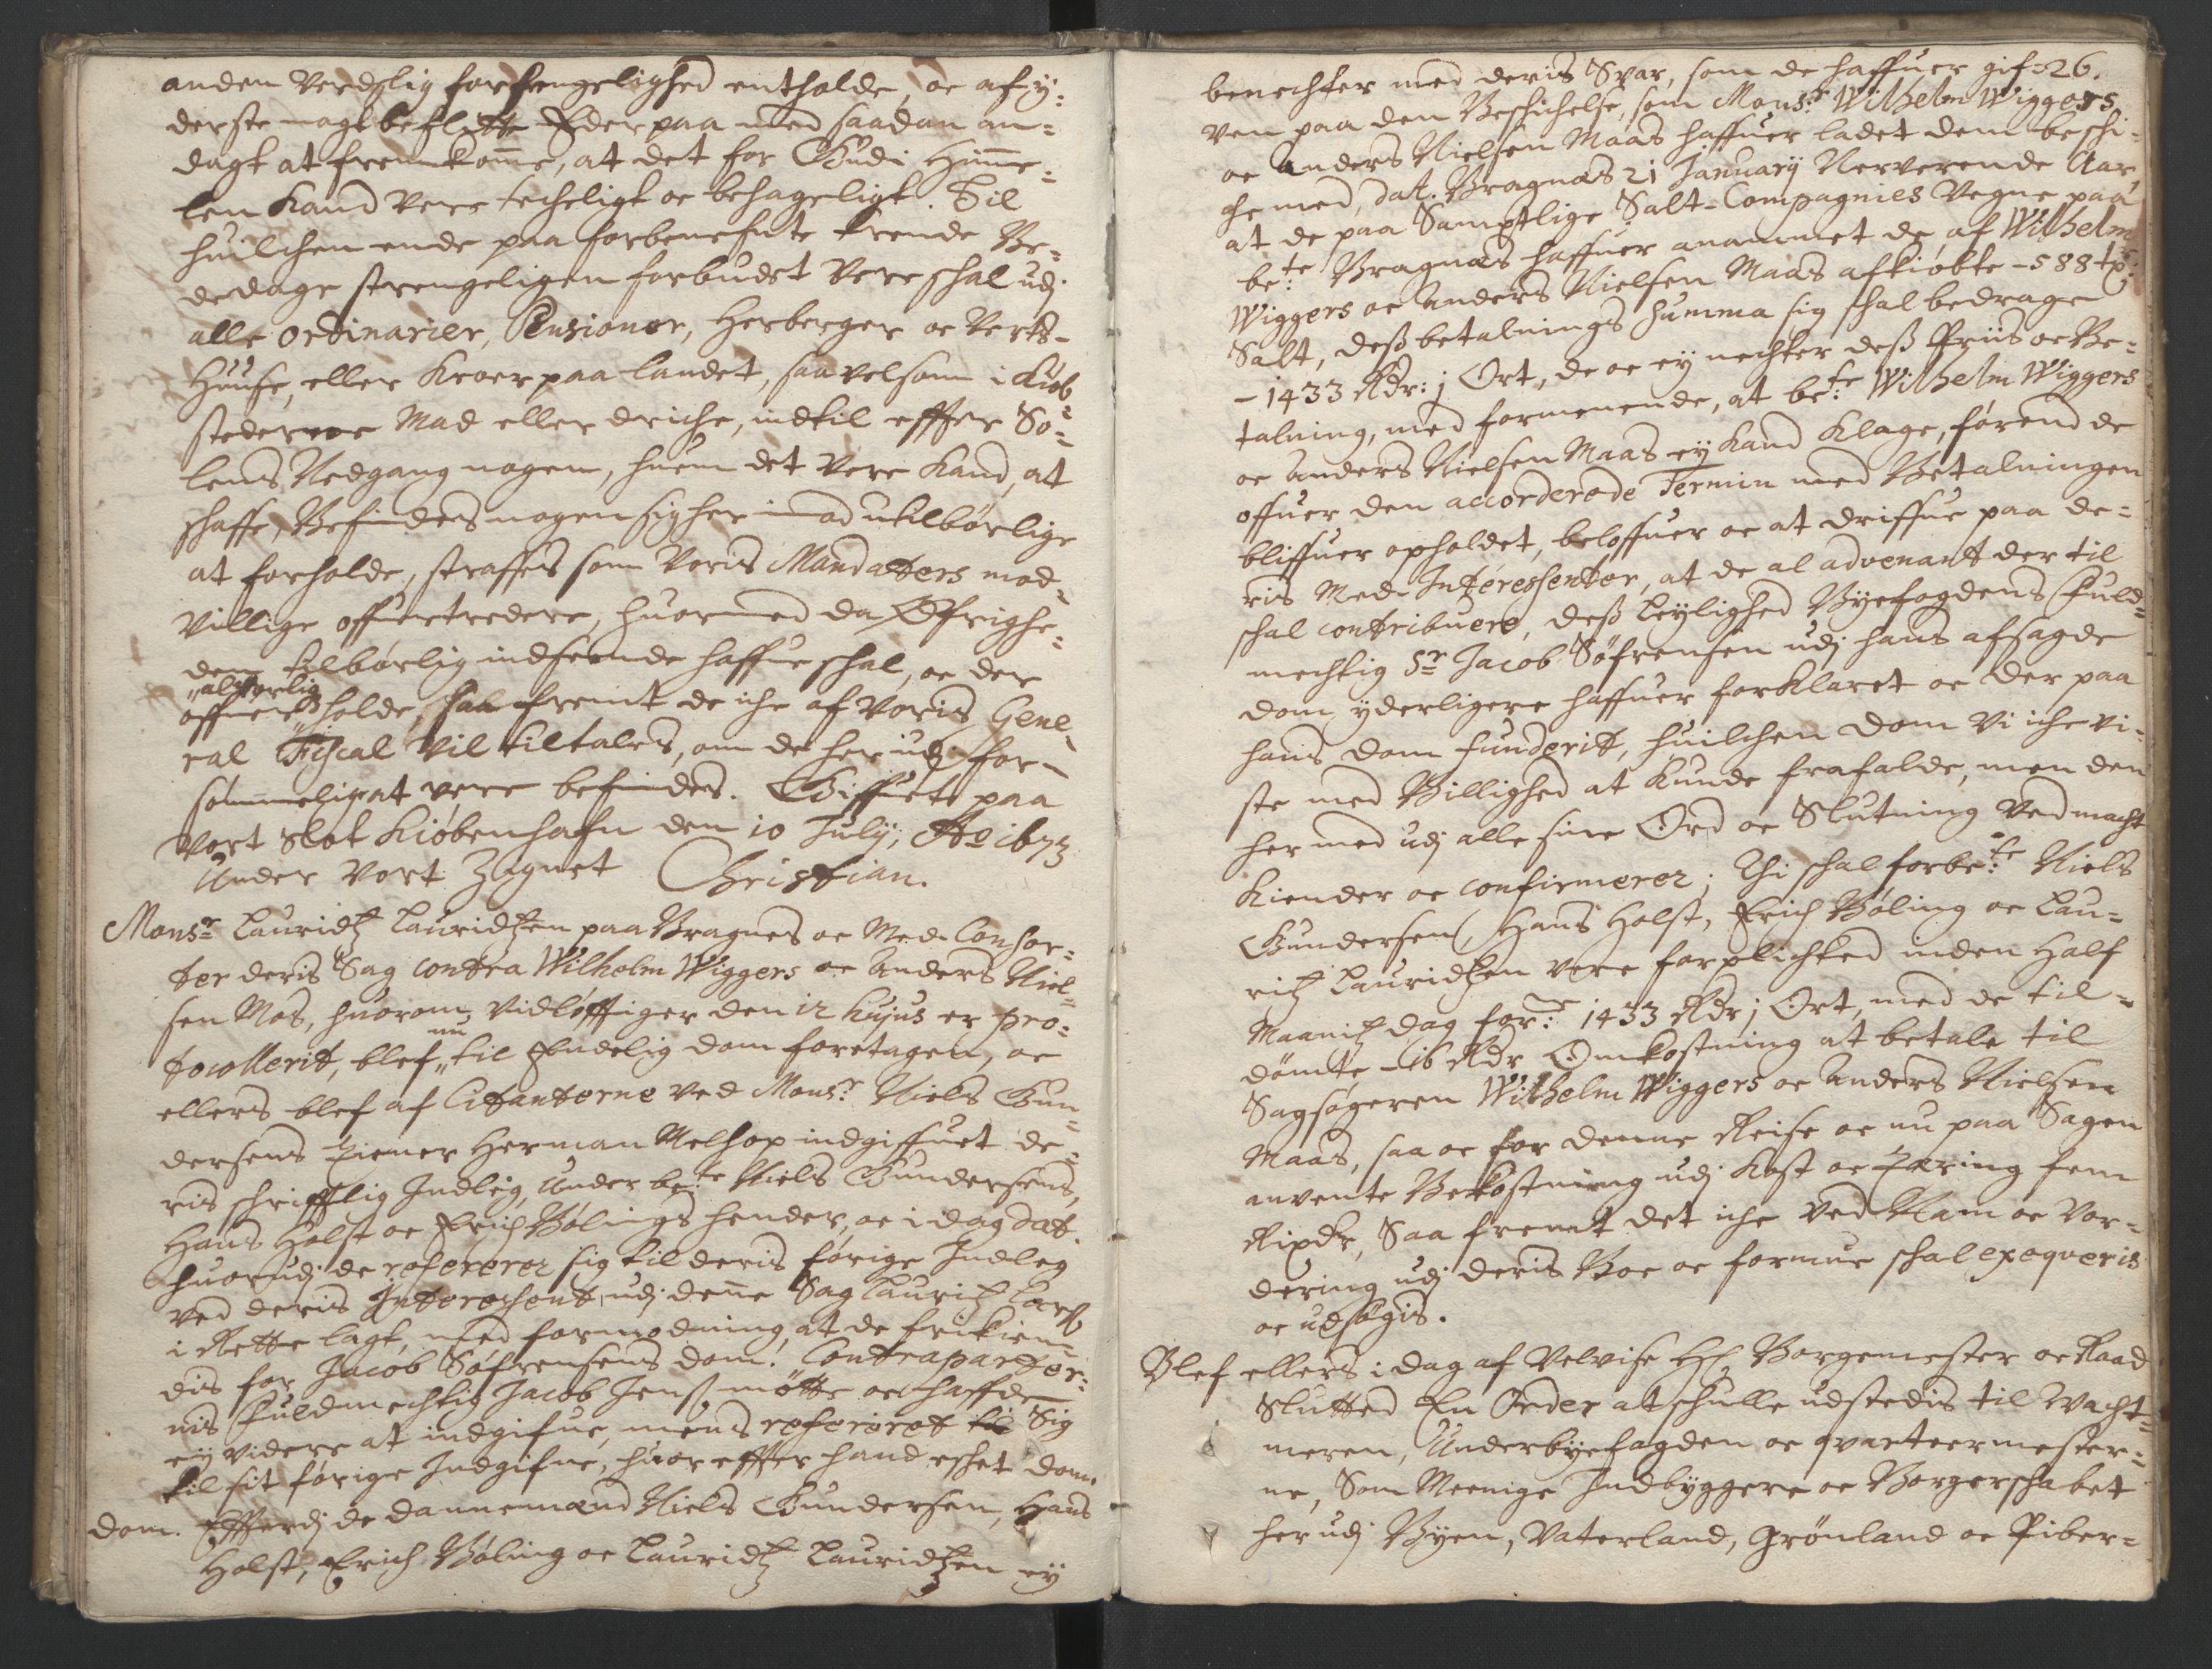 anden Verdslig forfengelighed entholde, oc af y¬
derste magt beflitte Eder paa med saadan an¬
dagt at fremkom̃e, at det for Gud i Him̃e¬
len kand vere techeligt oc behageligt. Til
huilchen ende paa forbenefnte trende Be¬
dedage strengeligen forbudet vere schal udj
alle ordinarier, Pensioner, Herberger oc Verts¬
Huuse, eller Kroer paa landet, saavelsom i Kiøb¬
stederne Mad eller driche, indtil effter So¬
lens Nedgang nogen, huem det vere kand, at
schaffe, Befindes nogen sig her imod utilbørlige
at forholde, straffes som Voris Mandaters mod¬
villige offuertredere, huormed da Øfrighe¬
den tilbørlig indseende haffue schal, oc der
alfvorlig
offuer holde, saa fremt de iche af Voris Gene¬
ral Fiscal vil tiltales, om de her udj for¬
sømmelig at vere befindes. Giffuet paa
Vort Slot Kiøbenhafn den 10 July, Ao 1673
Under Vort Zignet Christian.
Monsr Lauridtz Lauridtzen paa Bragnes oc Med Consor¬
ter deris Sag contra Wilhelm Wiggers oc Anders Niel¬
sen Mas, huorom vidløfftiger den 12 hujus er pro¬
nu
tocollerit, blef til Endelig dom foretagen, oc
ellers blef af Citanterne ved Monsr Niels Gun¬
dersens tiener Herman Melhop indgiffuet de¬
ris schrifftlig Indleg, under be:te Niels Gundersens,
Hans Holst oc Erich Bølings hender, oc i dag dat.
huorudj de refererer sig til deris førige Indleg
ved deris Interessent udj deñe Sag Lauritz Larß
i Rette lagt, med formodning, at de frikien¬
dis for Jacob Søfrensens dom. Contraparter¬
nis fuldmechtig Jacob Jenß møtte oc haffde
ey videre at indgifue, mens refereret til Sig
til sit førige Indgifue, huoreffter hand eschet dom.
dom. Efftterdj de dannemænd Niels Gundersen, Hans
Holst, Erich Bøling oc Lauridtz Lauridtzen ey
benechter med deris Svar, som de haffuer gif- 26.
ven paa den Beschichelse, som Monsr Wilhelm Wiggers
oc Anders Nielsen Maas haffuer ladet dem beschi¬
che med, dat. Bragnæs 21 January Nerverende Aar
at de paa Samptlige Salt-Compagnies Vegne paa
be:te Bragnæs haffuer anammet de af Wilhelm
Wiggers oc Anders Nielsen Maas afkiøbte - 588 tr:
Salt, deß betalnings Summa sig schal bedrage
- 1433 Rdr: j Ort, de oc ey nechter deß Priis oc Be¬
talning, med formenende, at be:te Wilhelm Wiggers
oc Anders Nielsen Maas ey kand Klage, førend de
offuer den accorderede Termin med Betalningen
bliffuer opholdet, beloffuer oc at driffue paa de¬
ris Med-Interessenter, at de al advenant der til
schal contribuere, deß leylighed Byefogdens fuld¬
mechtig Sr Jacob Søfrensen udj hans afsagde
dom yderligere haffuer forklaret oc der paa
hans dom funderit, huilchen dom vi iche vi¬
ste med Billighed at kunde frafalde, men den
hermed udj alle sine Ord oc Slutning ved macht
Kiender oc confirmerer; Thi schal forbe:te Niels
Gundersen, Hans Holst, Erich Bøling oc Lau¬
ritz Lauridtzen vere forplichted inden Half
Maanitz dag for:ne 1433 Rdr j Ort, med de til¬
dømte - 16 Rdr Omkostning at betale til
Sagsøgeren Wilhelm Wiggers oc Anders Nielsen
Maas, saa oc for denne Reise oc nu paa Sagen
anvente Bekostning udj Kost oc tæring fem
Rixdr, Saa fremt det iche ved Nam oc Vor¬
dering udj deris Boe oc formue schal exeqveris
oc udsøgis.
Blef ellers i dag af Velvise Hr Borgemester oc Raad
Slutted En Order at schulle udstedis til Wacht¬
meren, Underbyefogden oc qvarteermester¬
ne, Som Meenige Indbyggere oc Borgerschabet
her udj Byen, Vaterland, Grønland oc Piber¬